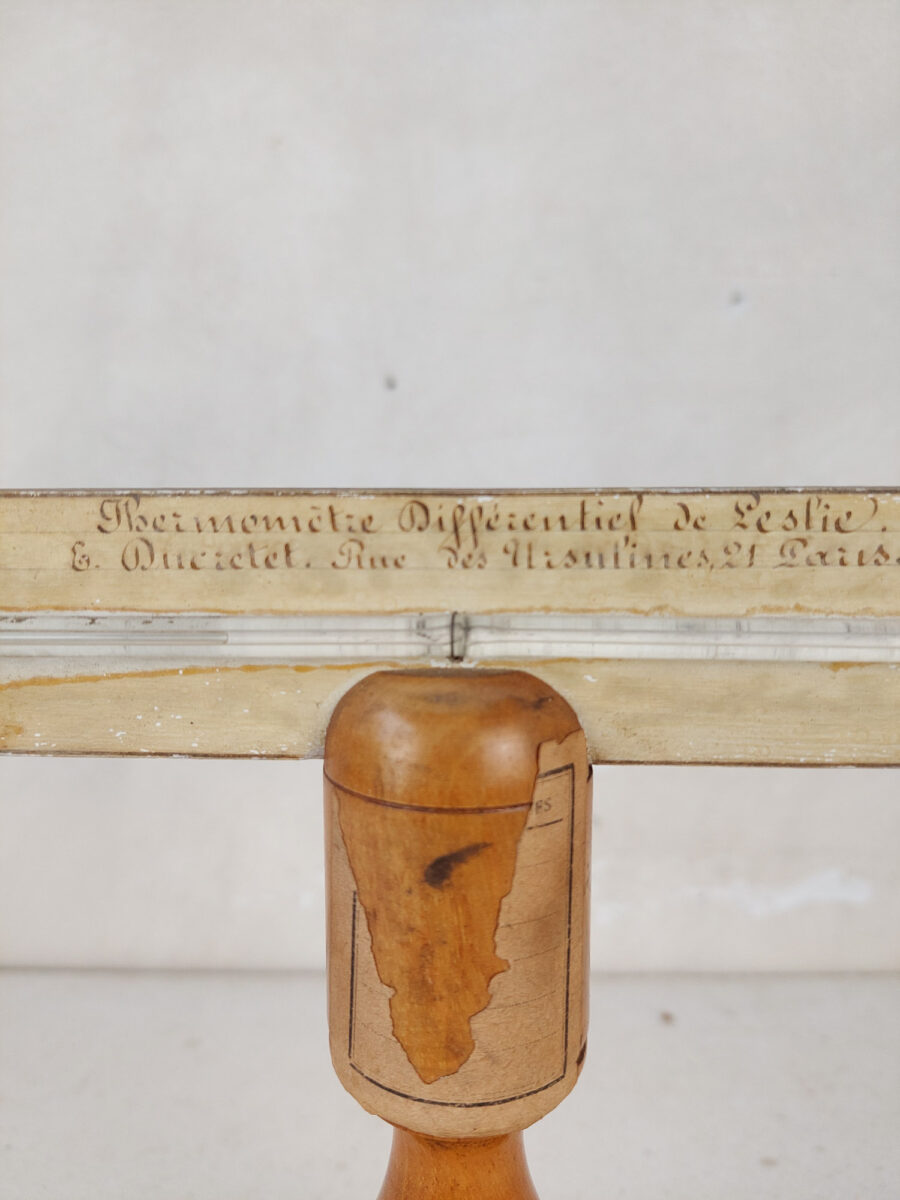 Thermomètre Différentiel de Leslie.
E. Ducretet. Rue des Ursulines, 21 Paris.
ES